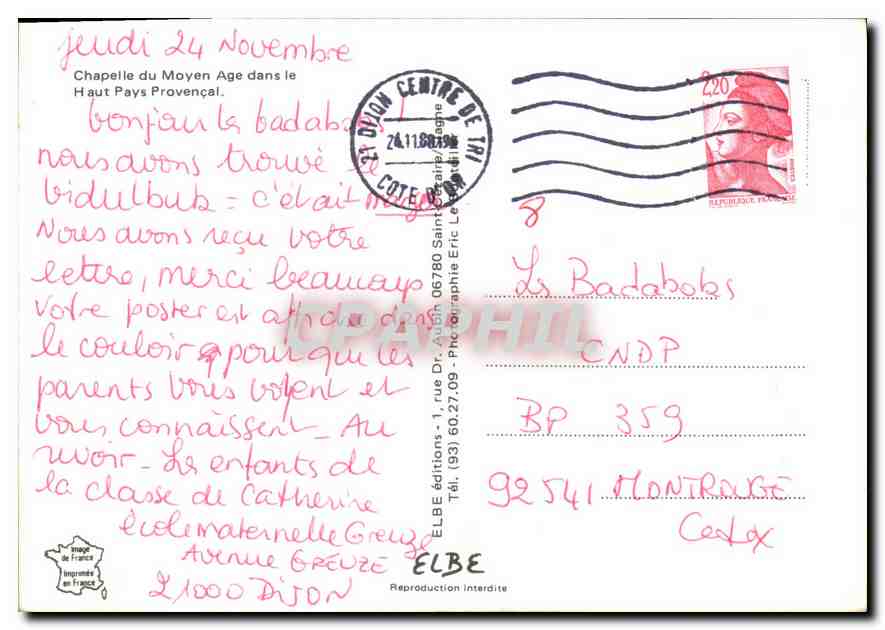 jeudi 24 Novembre
Chapelle du Moyen Age dans le
Haut Pays Provençal.
bonjour les badabobs !
nous avons trouvé le
bidulbuk = c'était
Nous avons reçu votre
lettre, merci beaucoup
votre poster est affiché dans
le couloir pour que les
parents vous voient et
vous connaissent - Au
revoir - Les enfants de
la classe de Catherine
école maternelle Greuze
Avenue GREUZE
21000 DIJON
Image
de France
Imprimée
en France
ELBE
Reproduction interdite
ELBE éditions - 1, rue Dr. Aubin 06780 Saint
Tél. (93) 60.27.09 - Photographie Eric
21 DIJON CENTRE DE TRI
COTE D'OR
2,20
REPUBLIQUE FRANÇAISE
8
Les Badabobs
CNDP
BP 359
92541 MONTROUGE
Cedex
CPAPHIL